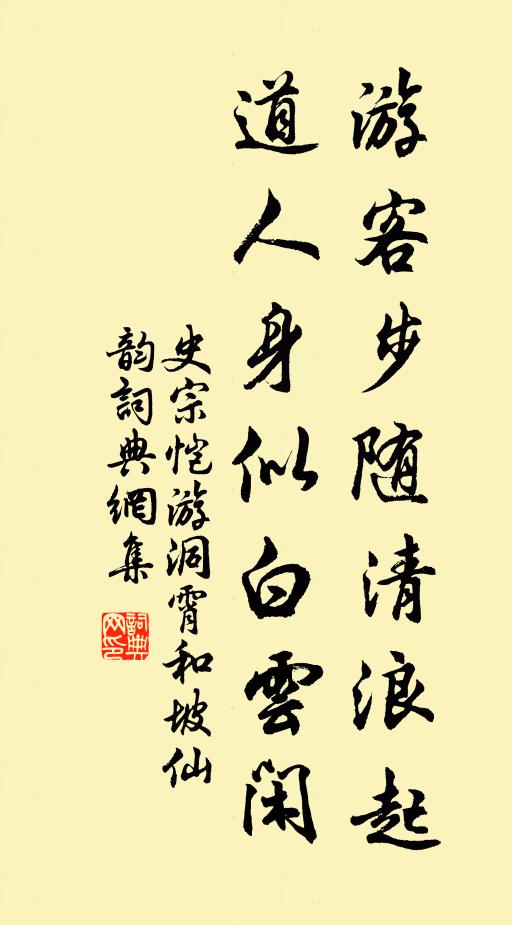 游客步随清浪起
道人身似白雲閑
史宗恺游洞霄和坡仙
韵詞典網集
詞典网印